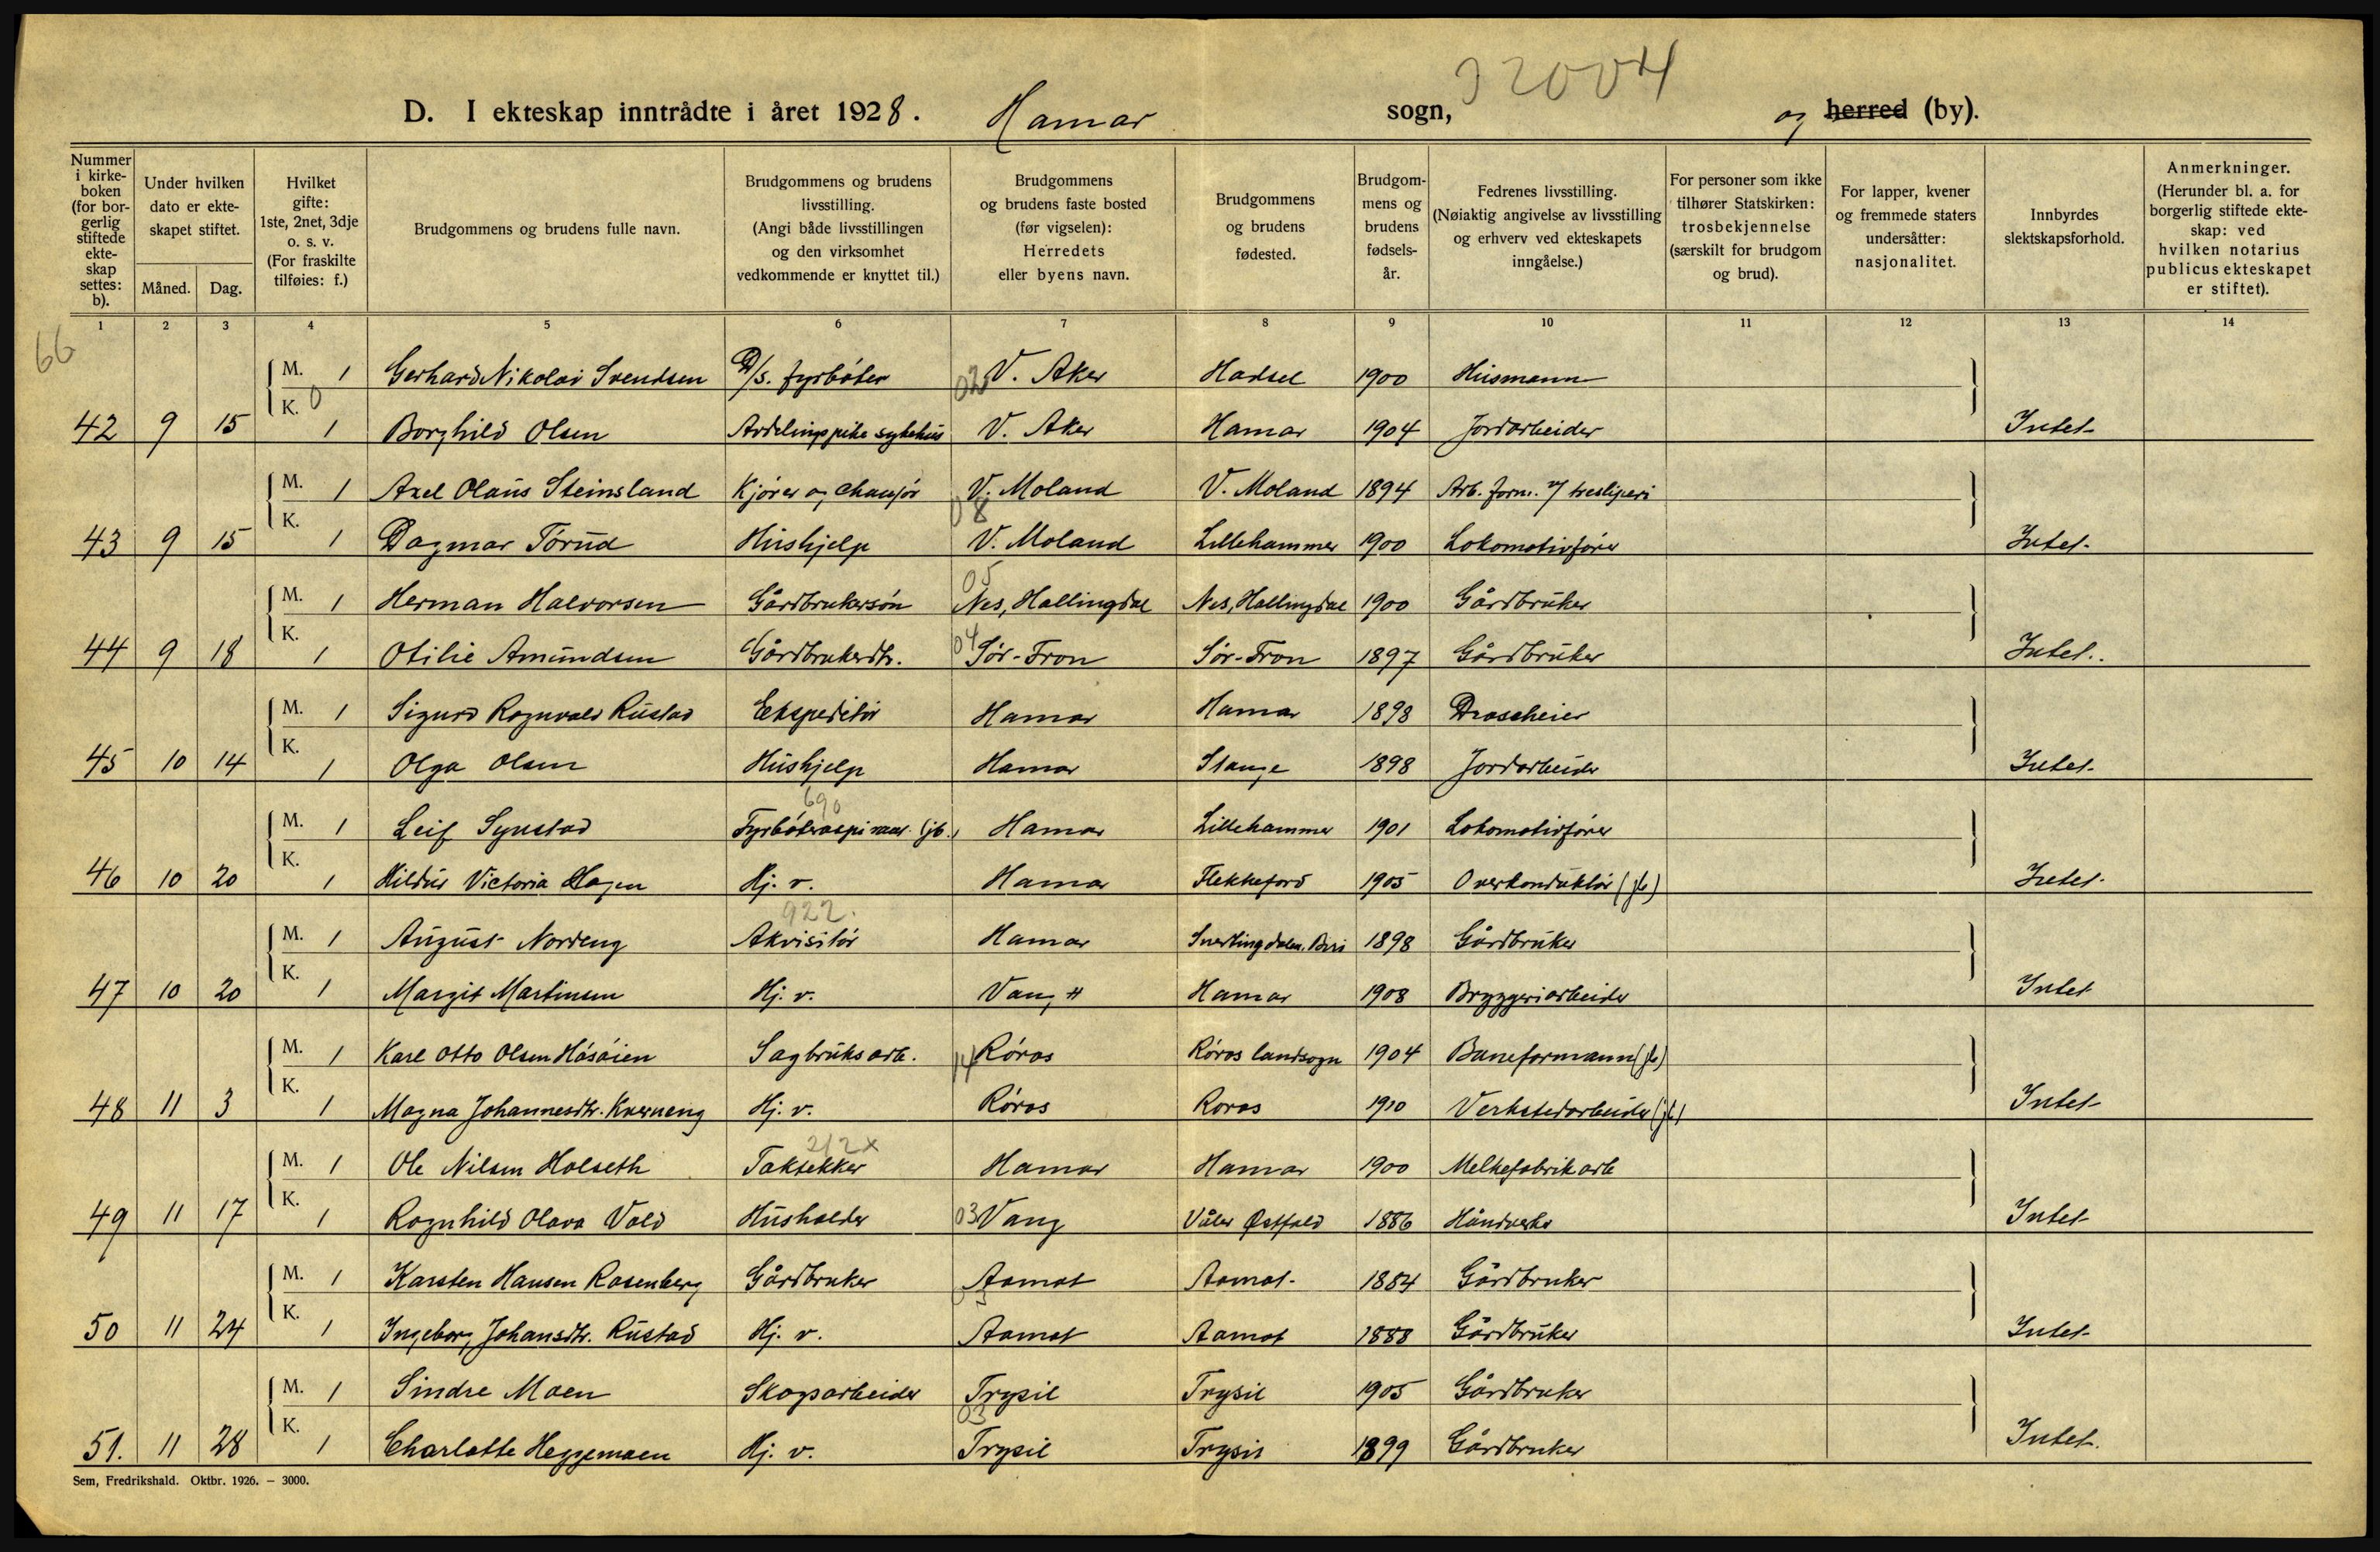 32004
D. I ekteskap inntrådte i året 1928. Hamar sogn, og herred (by).
Nummer i kirkeboken (for borgerlig stiftede ekteskap settes: b).
Under hvilken dato er ekteskapet stiftet.
Måned. Dag.
Hvilket gifte: 1ste, 2net, 3dje o. s. v. (For fraskilte tilføies: f.)
Brudgommens og brudens fulle navn.
Brudgommens og brudens livsstilling. (Angi både livsstillingen og den virksomhet vedkommende er knyttet til.)
Brudgommens og brudens faste bosted (før vigselen): Herredets eller byens navn.
Brudgommens og brudens fødested.
Brudgommens og brudens fødselsår.
Fedrenes livsstilling. (Nøiaktig angivelse av livsstilling og erhverv ved ekteskapets inngåelse.)
For personer som ikke tilhører Statskirken: trosbekjennelse (særskilt for brudgom og brud).
For lapper, kvener og fremmede staters undersåtter: nasjonalitet.
Innbyrdes slektskapsforhold.
Anmerkninger. (Herunder bl. a. for borgerlig stiftede ekteskap: ved hvilken notarius publicus ekteskapet er stiftet).
1 2 3 4 5 6 7 8 9 10 11 12 13 14
66
M. 1 Gerhard Nikolai Svendsen D/S. fyrbøter 02 V. Aker Hadsel 1900 Husmann
42 9 15 K. 0 1 Borghild Olsen Avdelingspike sykehus V. Aker Hamar 1904 Jordarbeider Intet
M. 1 Axel Olaus Steinsland Kjører og chaufør V. Moland V. Moland 1894 Arb. form. v/ tresliperi
08
43 9 15 K. 1 Dagmar Torud Hushjelp V. Moland Lillehammer 1900 Lokomotivfører Intet.
05
M. 1 Herman Halvorsen Gårdbrukersøn Nes, Hallingdal Nes, Hallingdal 1900 Gårdbruker
44 9 18 K. 1 Otilie Amundsen Gårdbrukerdtr. 04 Sør-Fron Sør-Fron 1897 Gårdbruker Intet.
M. 1 Sigurd Ragnvald Rustad Ekspeditør Hamar Hamar 1898 Droscheier
45 10 14 K. 1 Olga Olsen Hushjelp Hamar Stange 1898 Jordarbeider Intet.
690
M. 1 Leif Synstad Fyrbøteraspirant (jb.) Hamar Lillehammer 1901 Lokomotivfører
46 10 20 K. 1 Hildur Victoria Hagen Hj. v. Hamar Flekkefjord 1905 Overkonduktør (jb) Intet.
922.
M. 1 August Nordeng Akvisitør Hamar Snertingdalen, Biri 1898 Gårdbruker
47 10 20 K. 1 Margit Martinsen Hj. v. Vang H Hamar 1908 Bryggeriarbeider Intet
M. 1 Karl Otto Olsen Håsåien Sagbruksarb. 14 Røros Røros landsogn 1904 Baneformann (jb)
48 11 3 K. 1 Magna Johannesdtr. Kverneng Hj. v. Røros Røros 1910 Verkstedarbeider (jb) Intet
212x
M. 1 Ole Nilsen Holseth Taktekker Hamar Hamar 1900 Melkefabrikarb
49 11 17 K. 1 Ragnhild Olava Vold Husholder 03 Vang Våler Østfold 1886 Håndverker Intet
M. 1 Karsten Hansen Rosenberg Gårdbruker Aamot Aamot. 1884 Gårdbruker
03
50 11 24 K. 1 Ingeborg Johansdtr. Rustad Hj. v. Aamot Aamot 1888 Gårdbruker Intet
M. 1 Sindre Moen Skogsarbeider Trysil Trysil 1905 Gårdbruker
03
51. 11 28 K. 1 Charlotte Heggemoen Hj. v. Trysil Trysil 1899 Gårdbruker Intet.
Sem, Fredrikshald. Oktbr. 1926. – 3000.